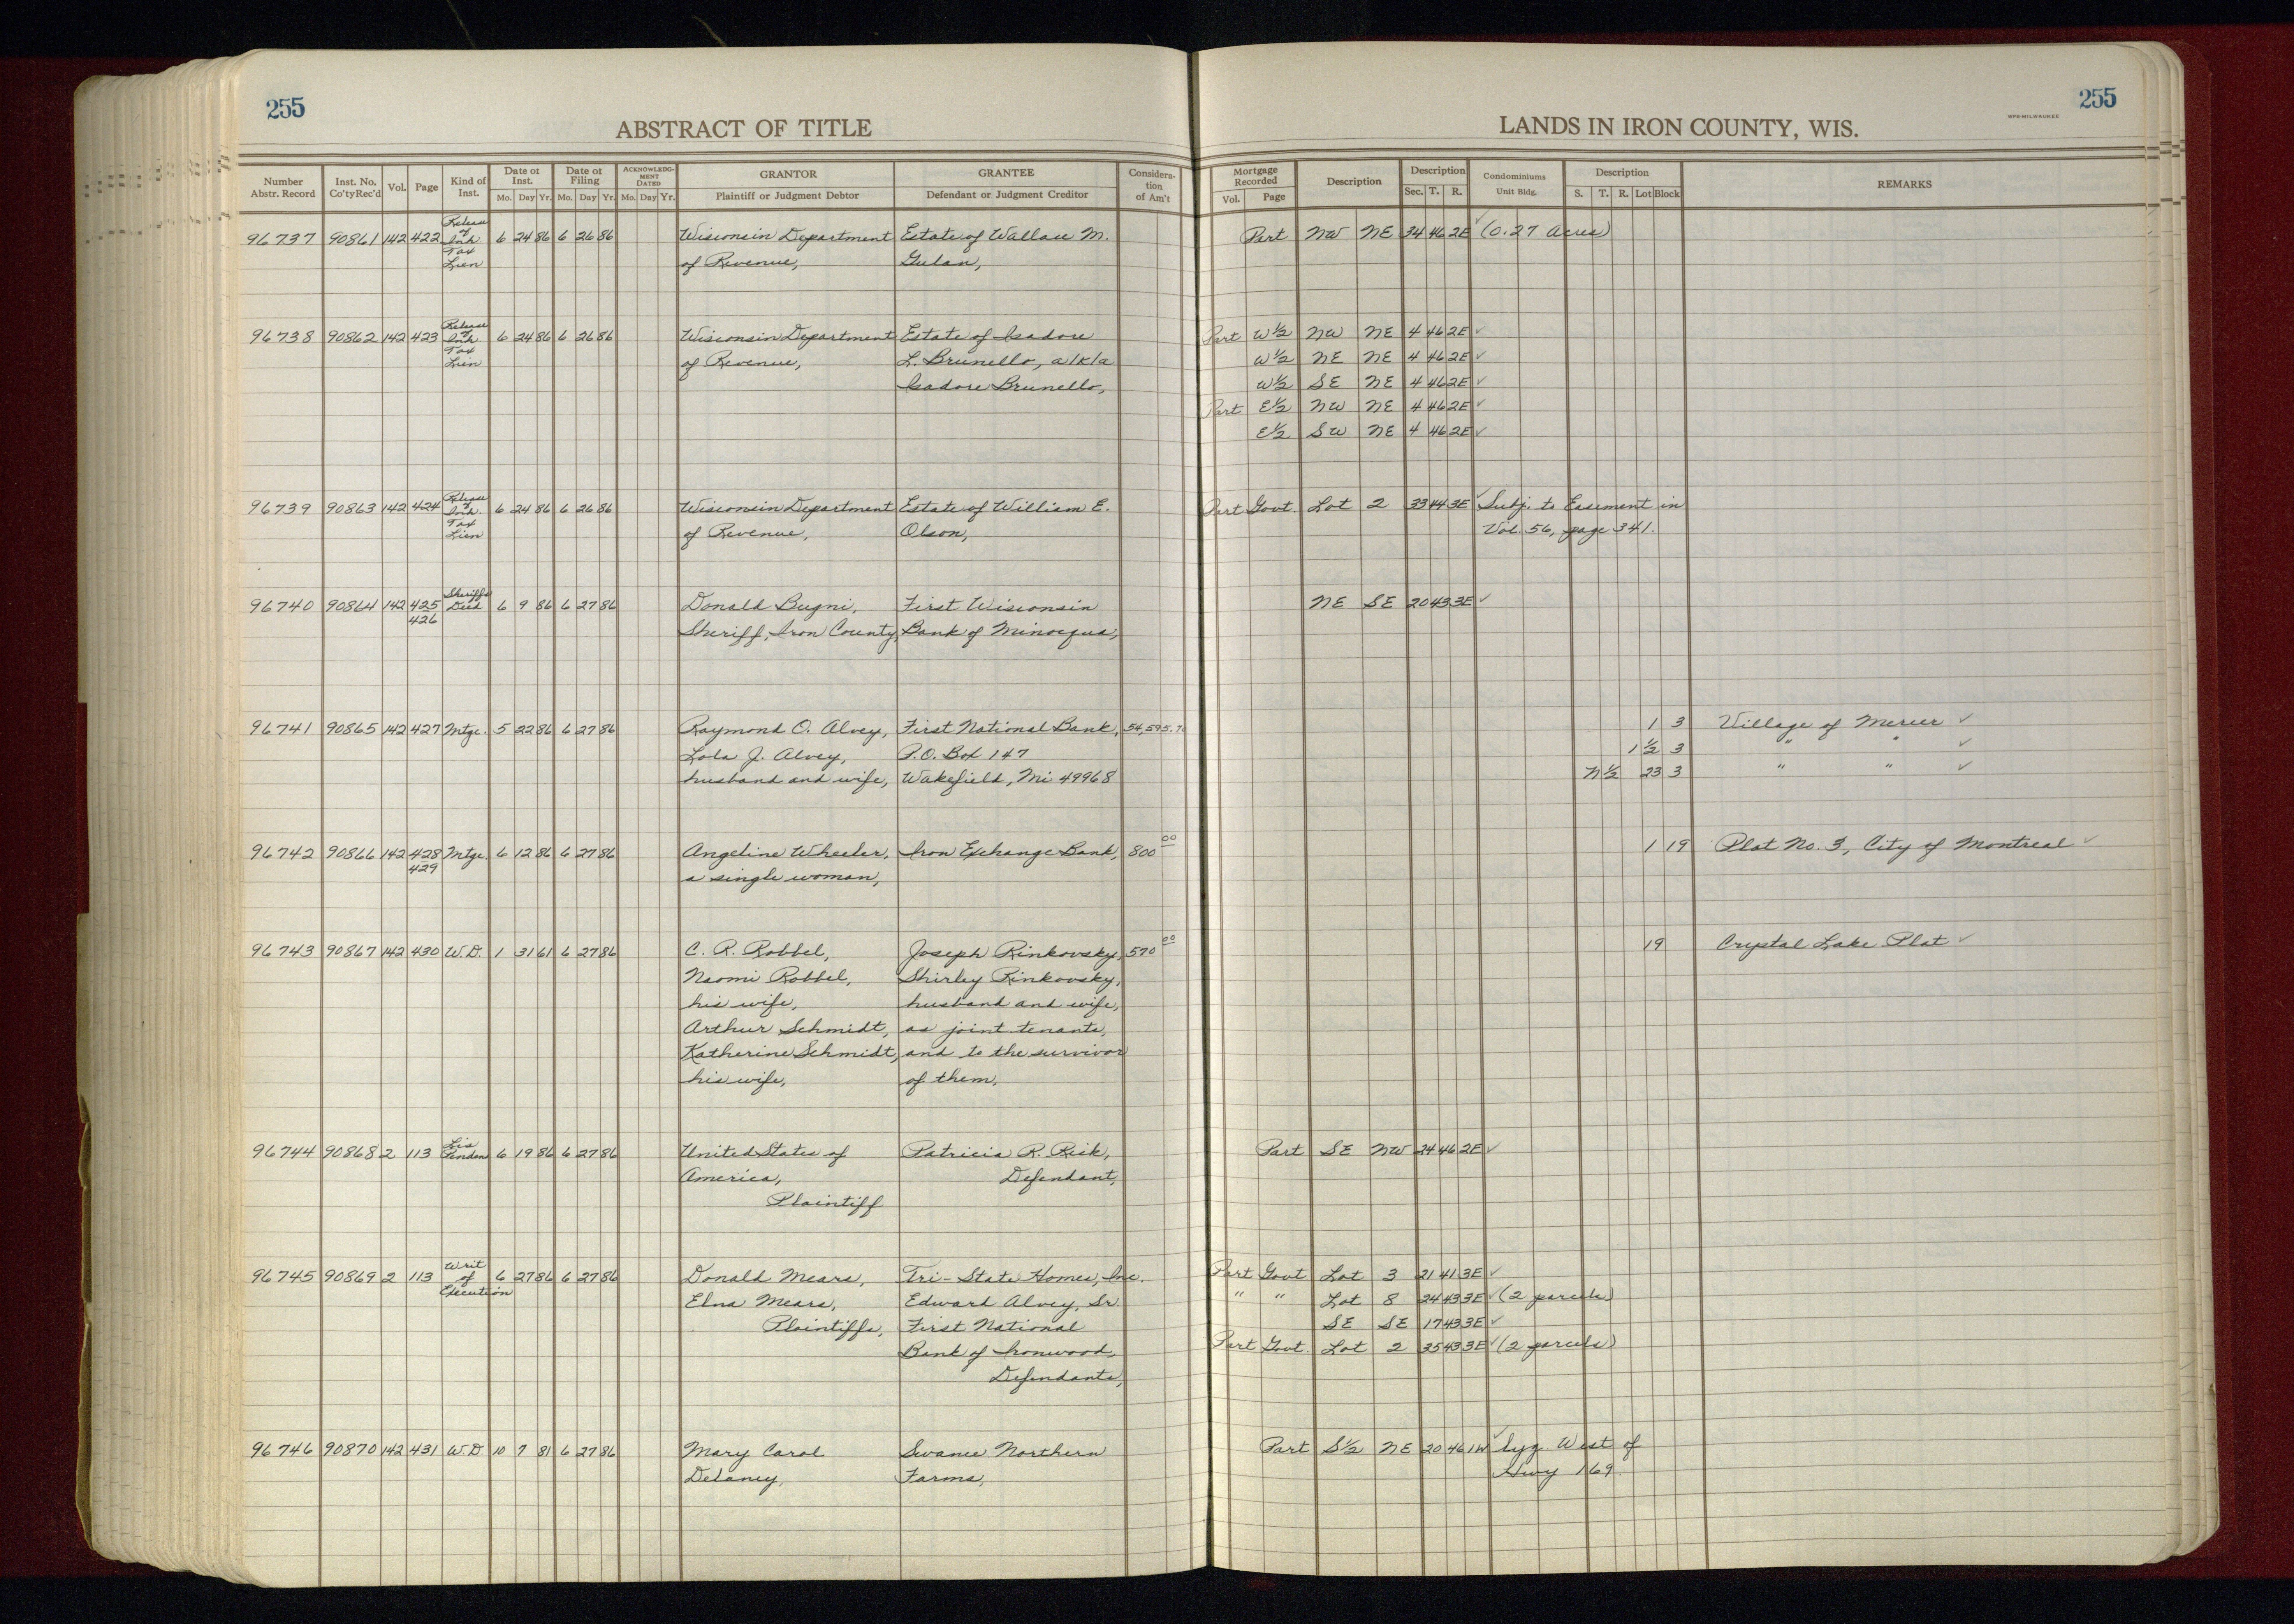 255
ABSTRACT OF TITLE
Number Abstr. Record | Inst. No. Co'ty Rec'd | Vol. | Page | Kind of Inst. | Date of Inst. Mo. Day Yr. | Date of Filing Mo. Day Yr. | ACKNOWLEDGMENT DATED Mo. Day Yr. | GRANTOR Plaintiff or Judgment Debtor | GRANTEE Defendant or Judgment Creditor | Consideration of Am't
LANDS IN IRON COUNTY, WIS.
WPB-MILWAUKEE
255
Mortgage Recorded Vol. Page | Description | Description Sec. T. R. | Condominiums Unit Bldg. | Description S. T. R. Lot Block | REMARKS
96737 90861 142 422 Release of Inh. Tax Lien 6 24 86 6 26 86 Wisconsin Department Estate of Wallace M. Part NW NE 34 46 2E ✓ (0.27 Acres)
of Revenue, Gulan,
96738 90862 142 423 Release of Inh. Tax Lien 6 24 86 6 26 86 Wisconsin Department Estate of Isadore Part W½ NW NE 4 46 2E ✓
of Revenue, L. Brunello, a/k/a W½ NE NE 4 46 2E ✓
Isadore Brunello, W½ SE NE 4 46 2E ✓
Part E½ NW NE 4 46 2E ✓
E½ SW NE 4 46 2E ✓
96739 90863 142 424 Release of Inh. Tax Lien 6 24 86 6 26 86 Wisconsin Department Estate of William E. Part Govt. Lot 2 33 44 3E ✓ Subj. to Easement in
of Revenue, Olson, Vol. 56, page 341.
96740 90864 142 425 Sheriff's Deed 6 9 86 6 27 86 Donald Bugni, First Wisconsin NE SE 20 43 3E ✓
426 Sheriff, Iron County, Bank of Minocqua,
96741 90865 142 427 Mtge. 5 22 86 6 27 86 Raymond O. Alvey, First National Bank, 54,595. 1 3 Village of Mercer ✓
Lola J. Alvey, P.O. Box 147 1 ½ 3 " " ✓
husband and wife, Wakefield, Mi 49968 N½ 23 3 " " ✓
96742 90866 142 428 Mtge. 6 12 86 6 27 86 Angeline Wheeler, Iron Exchange Bank, 800 00 1 19 Plat No. 3, City of Montreal ✓
429 a single woman,
96743 90867 142 430 W.D. 1 31 61 6 27 86 C. R. Robbel, Joseph Rinkovsky, 570 00 19 Crystal Lake Plat ✓
Naomi Robbel, Shirley Rinkovsky,
his wife, husband and wife,
Arthur Schmidt, as joint tenants,
Katherine Schmidt, and to the survivor
his wife, of them,
96744 90868 2 113 Lis Penden 6 19 86 6 27 86 United States of Patricia R. Risk, Part SE NW 24 46 2E ✓
America, Defendant,
Plaintiff
96745 90869 2 113 Writ of Execution 6 27 86 6 27 86 Donald Mears, Tri-State Homes, Inc. Part Govt Lot 3 21 41 3E ✓
Elna Mears, Edward Alvey, Sr. " " Lot 8 24 43 3E ✓ (2 parcels)
Plaintiffs, First National SE SE 17 43 3E ✓
Bank of Ironwood, Part Govt. Lot 2 35 43 3E ✓ (2 parcels)
Defendants,
96746 90870 142 431 W.D. 10 7 81 6 27 86 Mary Carol Swanee Northern Part S½ NE 20 46 1W ✓ lyg. West of
Delaney, Farms, Hwy 169.